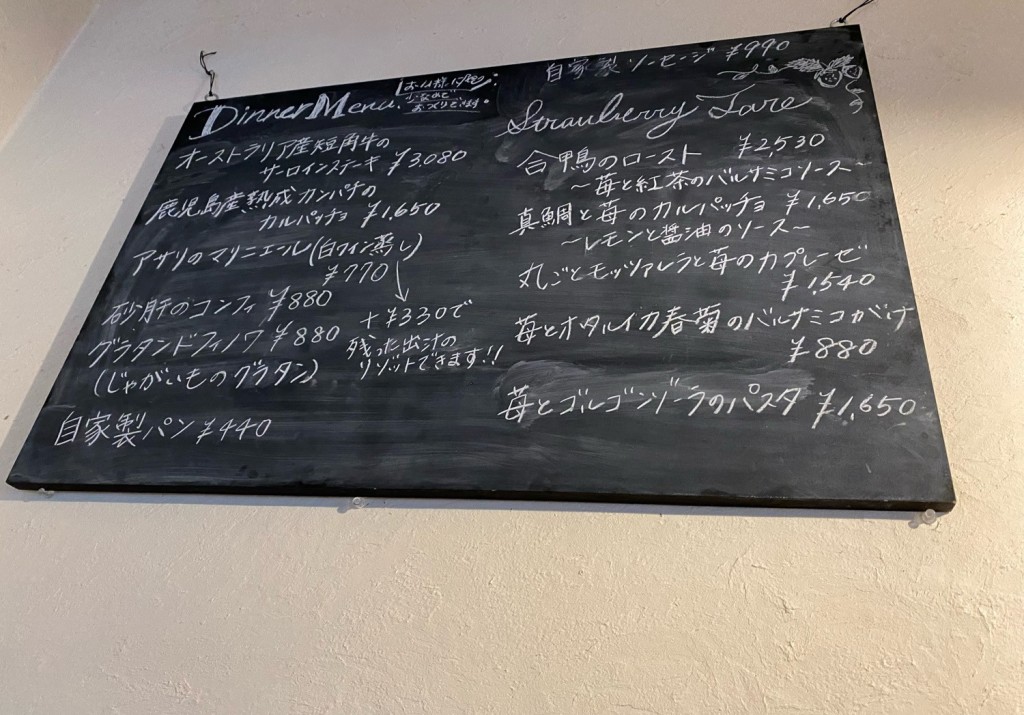 Dinner Menu.
お一人様
少なめで
おつくりできます。
オーストラリア産短角牛の
サーロインステーキ ¥3,080
鹿児島産熟成カンパチの
カルパッチョ ¥1,650
アサリのマリニエール(白ワイン蒸し)
¥770
+¥330で
残った出汁の
リゾットできます!!
砂肝のコンフィ ¥880
グラタンドフィノワ ¥880
(じゃがいものグラタン)
自家製パン ¥440
自家製ソーセージ ¥990
Strawberry Fare
合鴨のロースト ¥2,530
~苺と紅茶のバルサミコソース~
真鯛と苺のカルパッチョ ¥1,650
~レモンと醤油のソース~
丸ごとモッツァレラと苺のカプレーゼ
¥1,540
苺とホタルイカ春菊のバルサミコがけ
¥880
苺とゴルゴンゾーラのパスタ ¥1,650